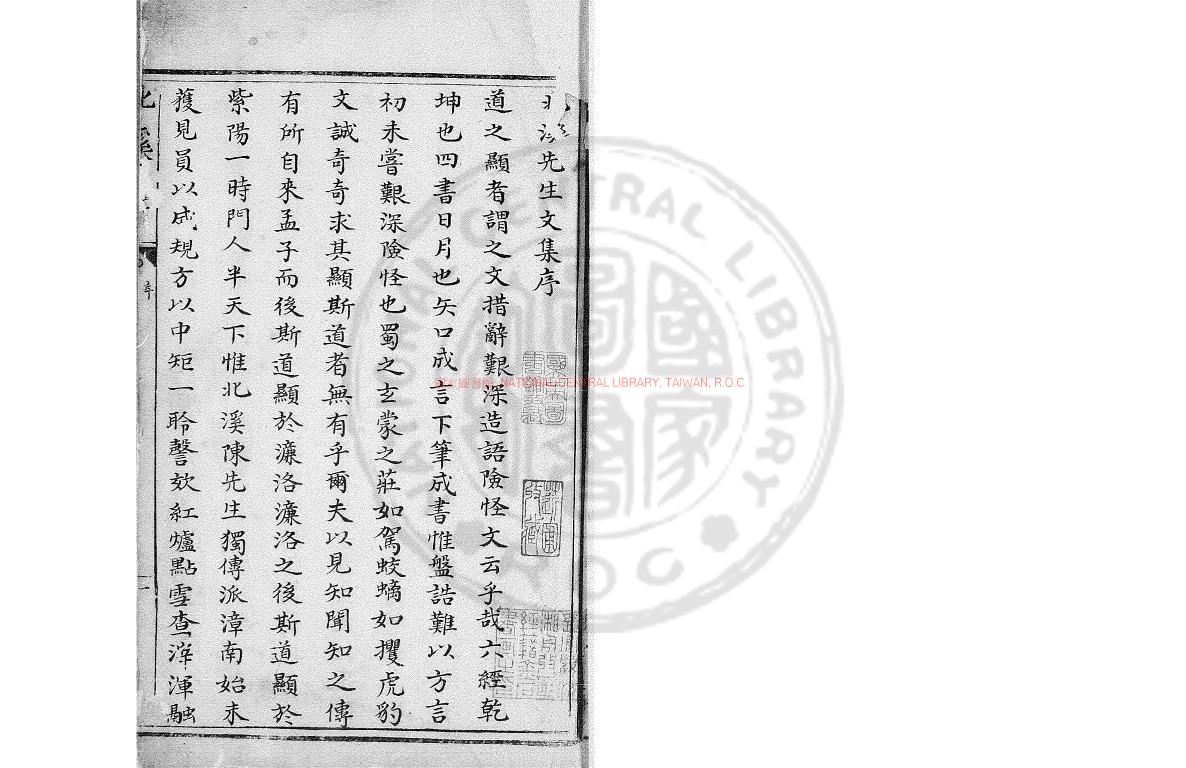 北溪先生文集序
道之顯者謂之文措辭艱深造語險怪文云乎哉六經乾
坤也四書日月也矢口成言下筆成書惟盤誥難以方言
初未嘗艱深險怪也蜀之玄蒙之莊如駕蛟螭如攫虎豹
文誠奇奇求其顯斯道者無有乎爾夫以見知聞知之傳
有所自來孟子而後斯道顯於濂洛濂洛之後斯道顯於
紫陽一時門人半天下惟北溪陳先生獨傳派漳南始未
獲見員以成規方以中矩一聆謦欬紅爐點雪查滓渾融
北溪
序
NATIONAL CENTRAL LIBRARY, TAIWAN, R.O.C.
NATIONAL CENTRAL LIBRARY R.O.C